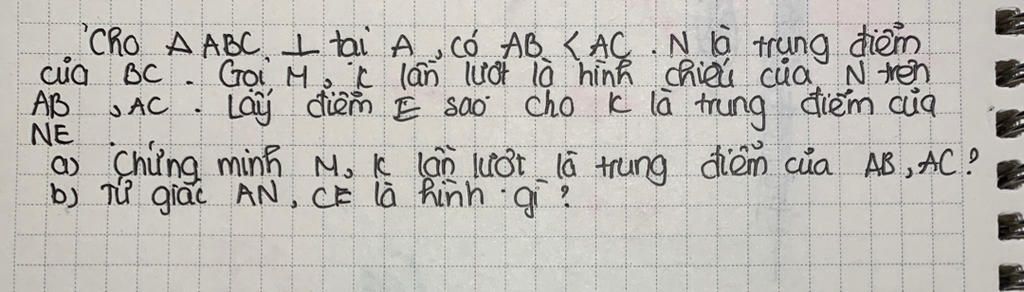 Cho Δ ABC ⊥ tại A, có AB < AC. N là trung điểm
của BC. Gọi M, K lần lượt là hình chiếu của N trên
AB, AC. Lấy điểm E sao cho K là trung điểm của
NE.
a) Chứng minh M, K lần lượt là trung điểm của AB, AC?
b) Tứ giác AN, CE là hình gì?